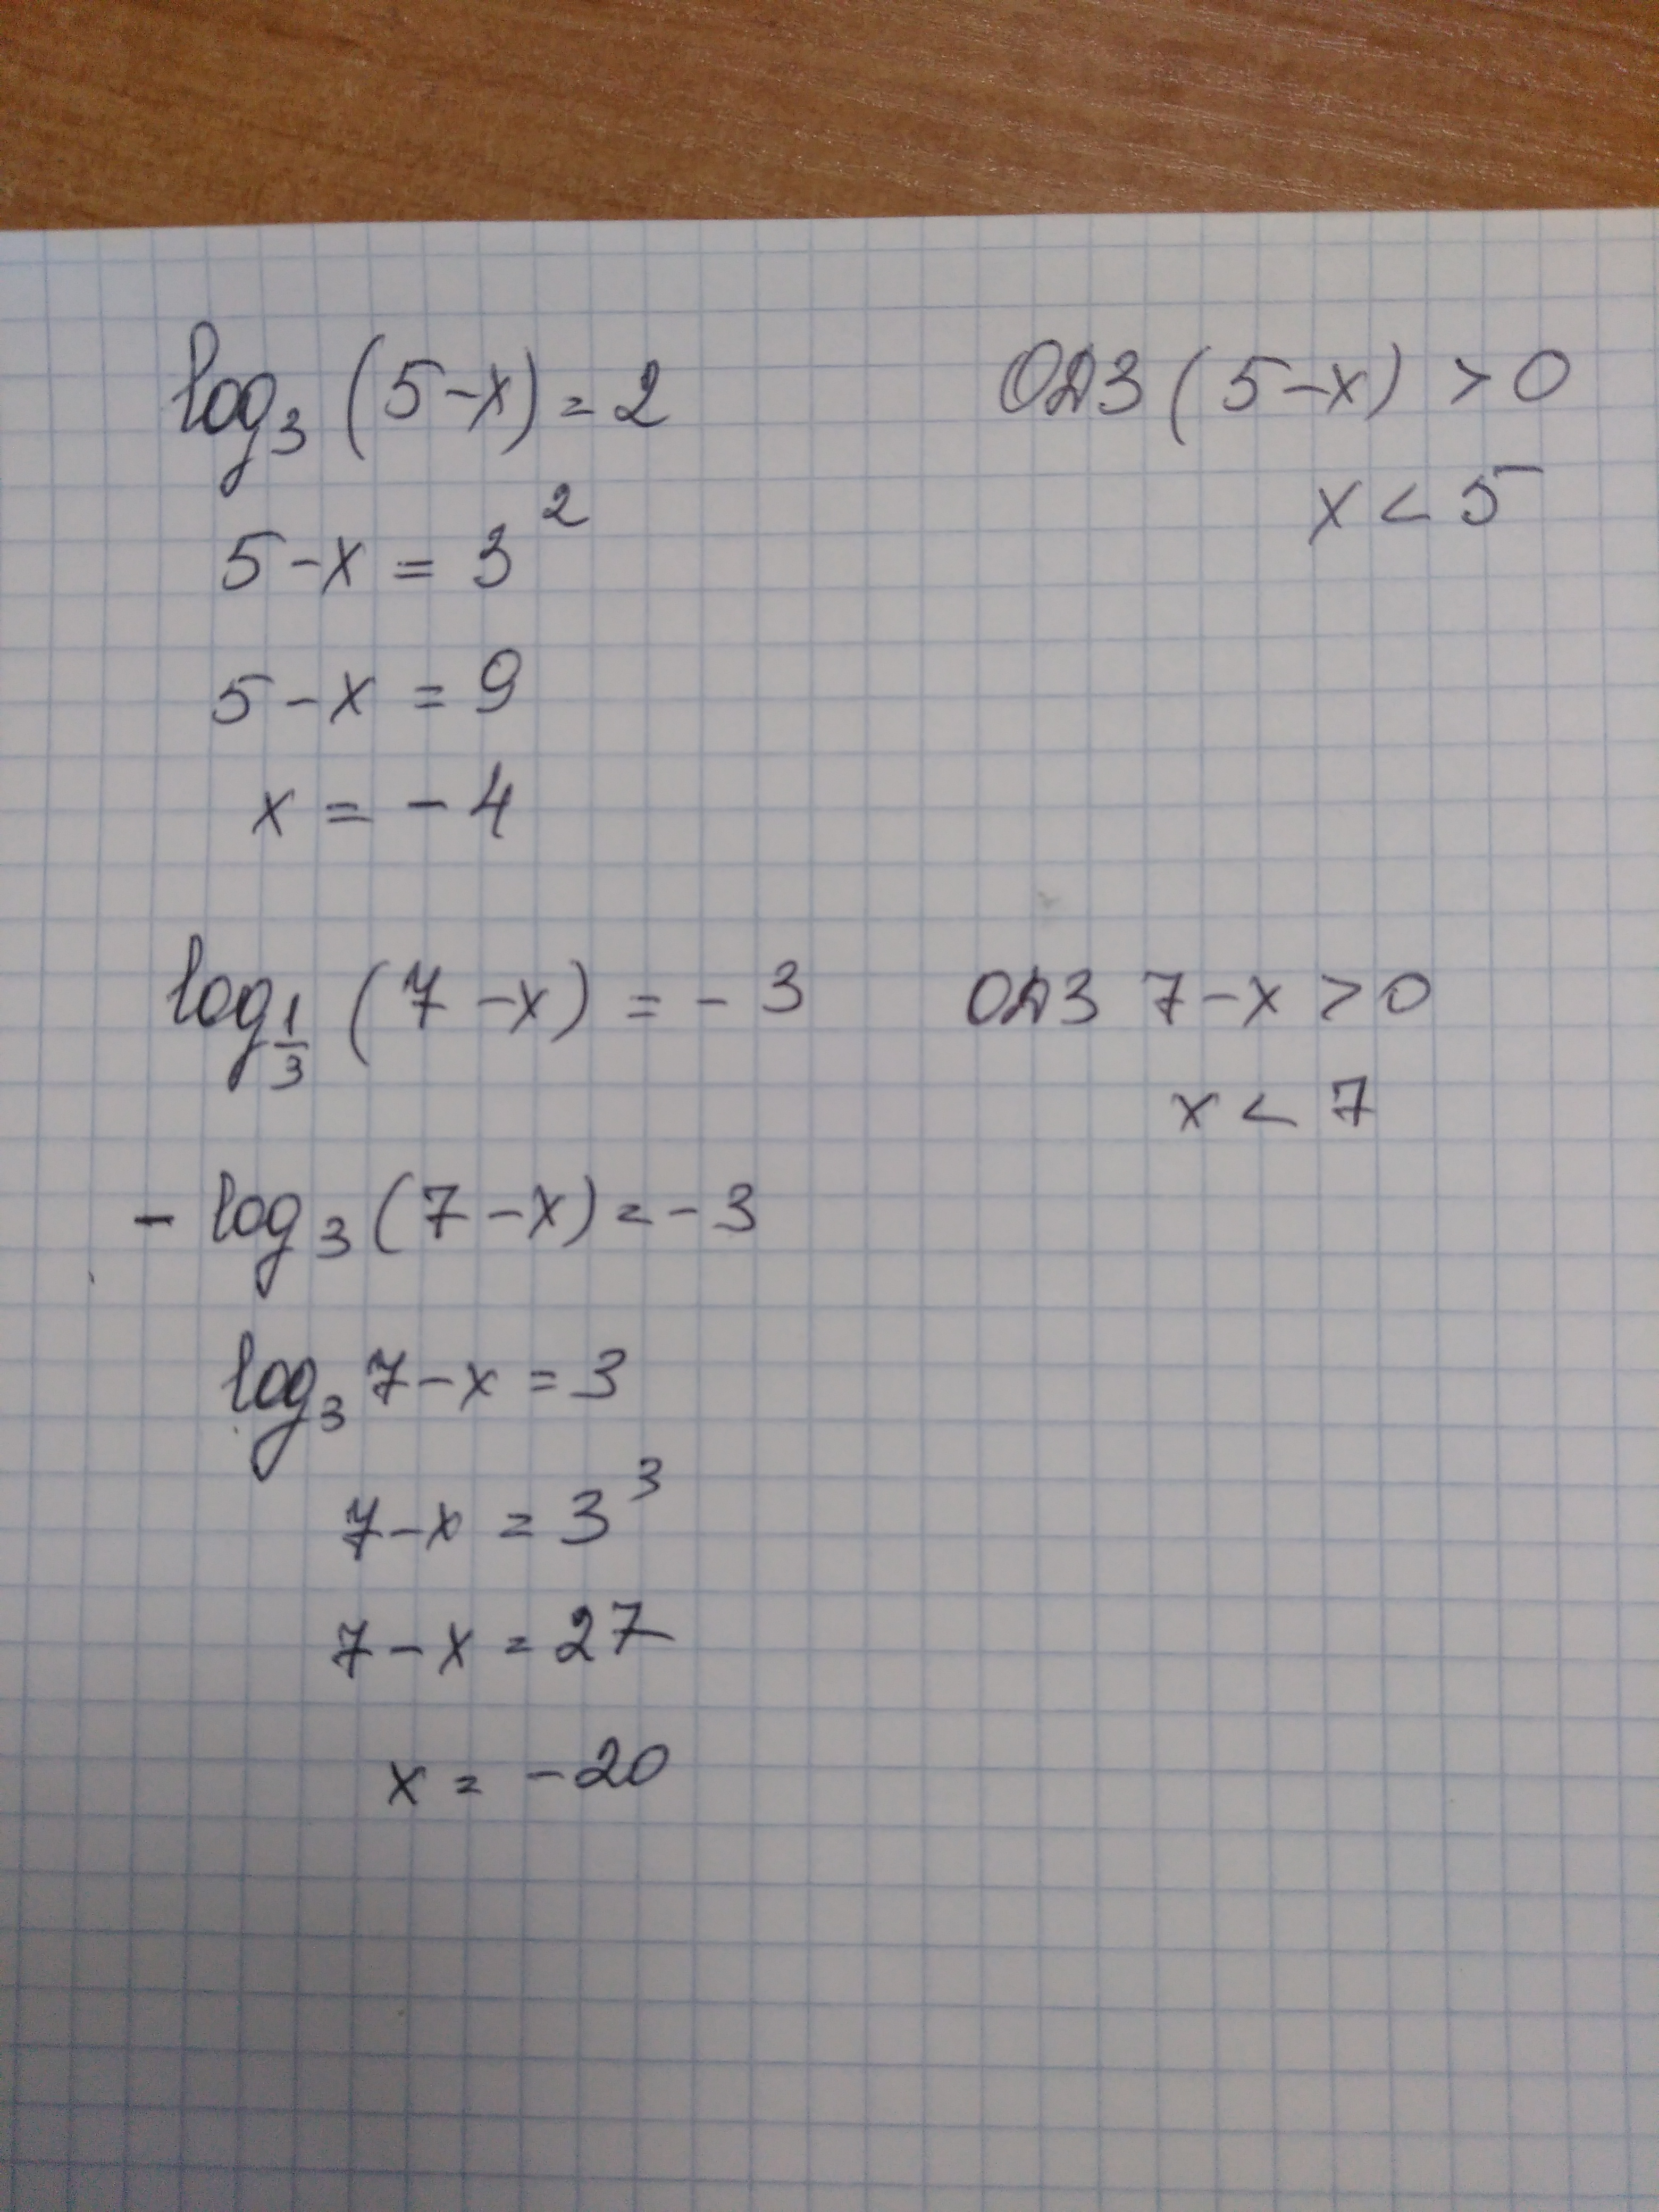 log₃ (5-x) = 2 ОДЗ (5-x) > 0
x < 5
5-x = 3²
5-x = 9
x = -4
log_{1/3} (7-x) = -3 ОДЗ 7-x > 0
x < 7
- log₃ (7-x) = -3
log₃ 7-x = 3
7-x = 3³
7-x = 27
x = -20